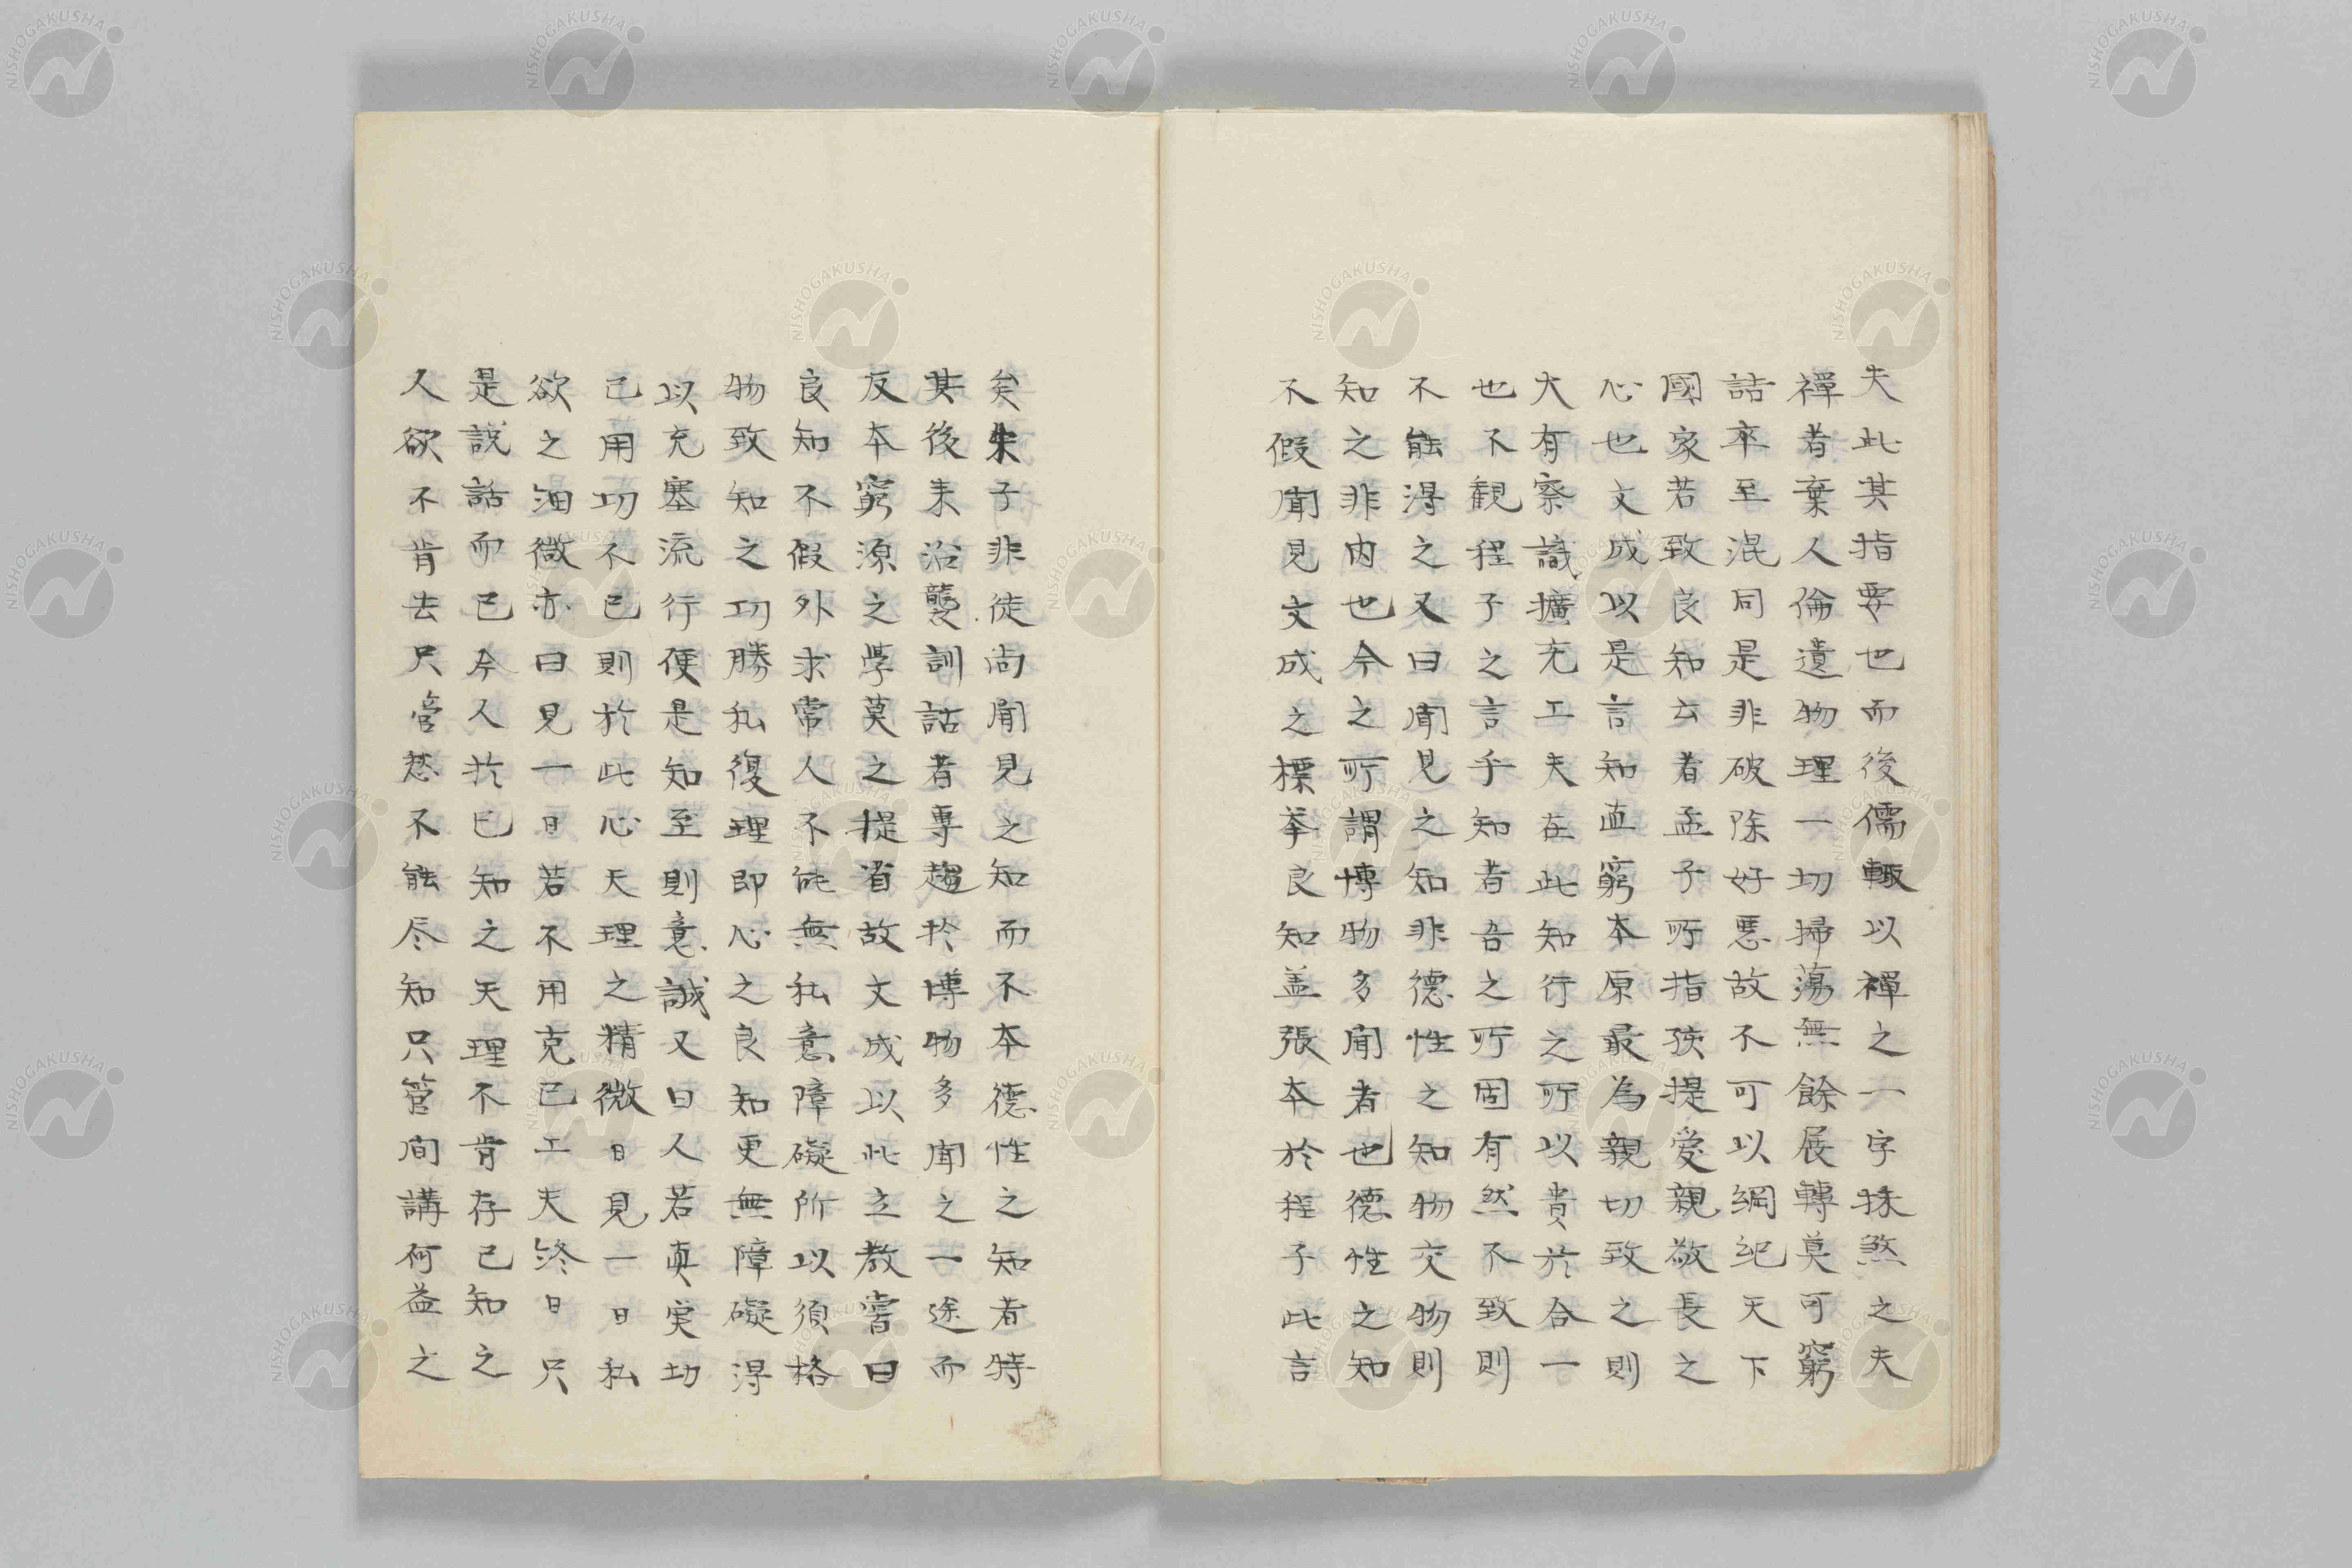 夫此其指要也而後儒輙以禪之一字抹煞之夫
禪者棄人倫遺物理一切掃蕩無餘展轉莫可窮
詰卒至混同是非破除好悪故不可以綱紀天下
國家若致良知云者孟子所指孩提愛親敬長之
心也文成以是言知直窮本原最為親切致之則
大有察識擴充工夫在此知行之所以貴於合一
也不観程子之言乎知者吾之所固有然不致則
不能淂之又曰聞見之知非德性之知物交物則
知之非内也今之所謂博物多聞者也德性之知
不假聞見文成之標挙良知盖張本於程子此言
矣朱子非徒尚聞見之知而不本德性之知者特
其後来沿襲訓詁者專趨於博物多聞之一途而
反本窮源之學莫之提省故文成以此立教嘗曰
良知不假外求常人不能無私意障礙所以須格
物致知之功勝私復理即心之良知更無障礙淂
以充塞流行便是知至則意誠又曰人若真実切
己用功不已則於此心天理之精微日見一日私
欲之細微亦日見一日若不用克己工夫終日只
是説話而已今人於已知之天理不肯存已知之
人欲不肯去只管愁不能尽知只管間講何益之
NISHOGAKUSHA